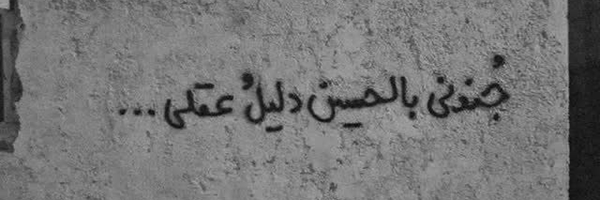 جُنوني بالحسين دليلُ عقلي...